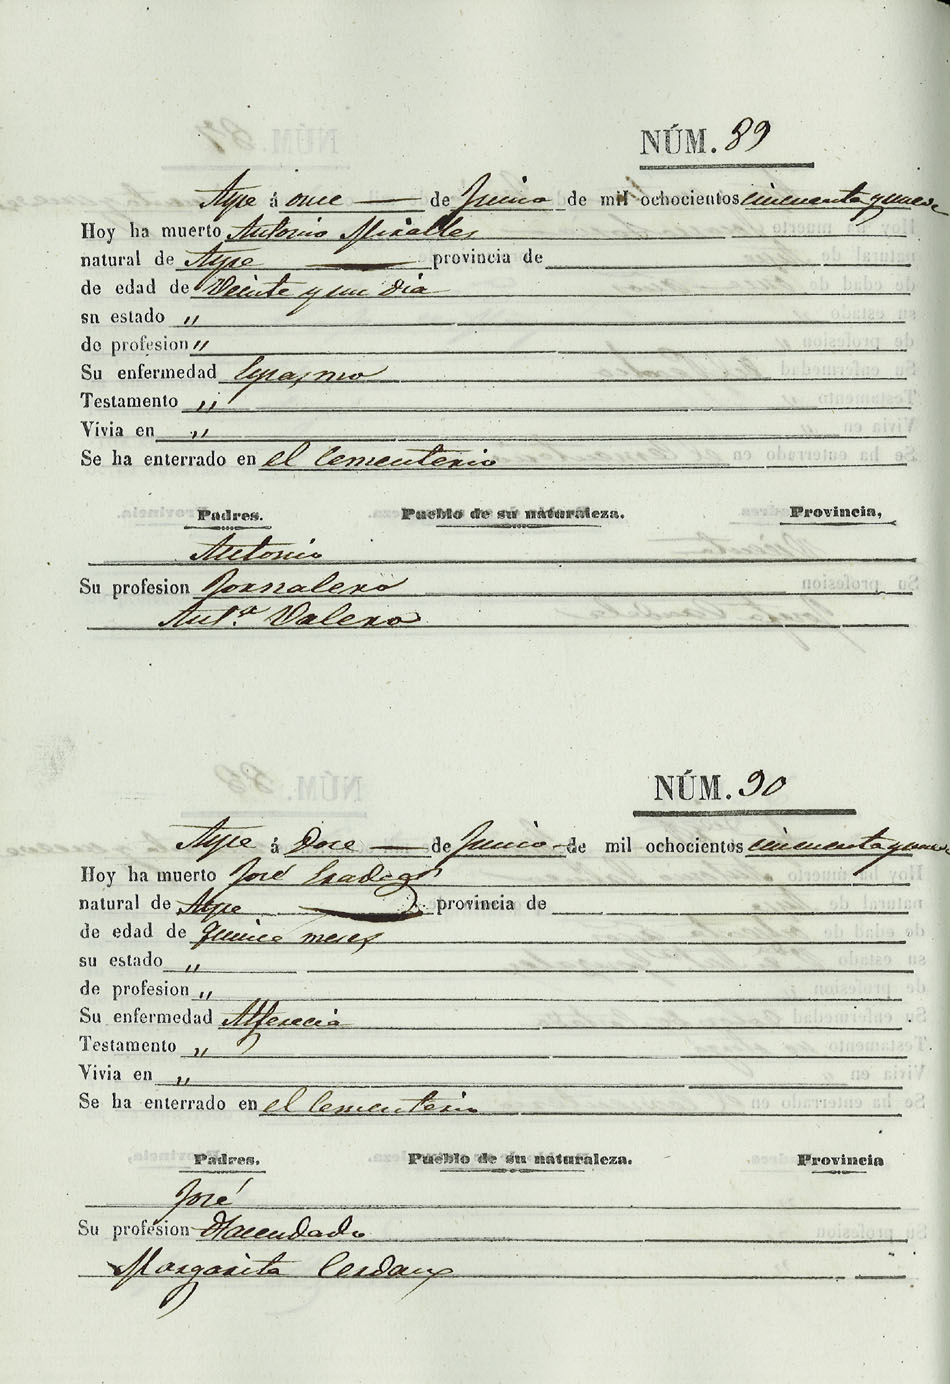 NÚM. 89
Aspe á once de Junio de mil ochocientos cincuenta y nueve
Hoy ha muerto Antonio Miralles
natural de Aspe provincia de
de edad de Veinte y un dia
su estado "
de profesion "
Su enfermedad Espasmo
Testamento "
Vivia en "
Se ha enterrado en el Cementerio
Padres. Pueblo de su naturaleza. Provincia,
Antonio
Su profesion Jornalero
Ant.ª Valero
NÚM. 90
Aspe á Doce de Junio de mil ochocientos cincuenta y nueve
Hoy ha muerto José
natural de Aspe provincia de
de edad de quince meses
su estado "
de profesion "
Su enfermedad Alferecia
Testamento "
Vivia en "
Se ha enterrado en el Cementerio
Padres. Pueblo de su naturaleza. Provincia
José
Su profesion Hacendado
Margarita Cerdan